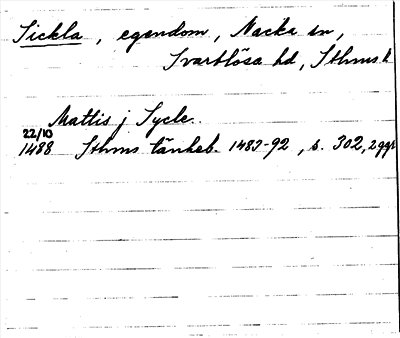 Sickla, egendom, Nacka sn,
Svartlösa hd, Sthms l
Mattis j Sycle.
22/10
1488 Sthms tänkeb. 1483-92, s. 302, 2 ggr